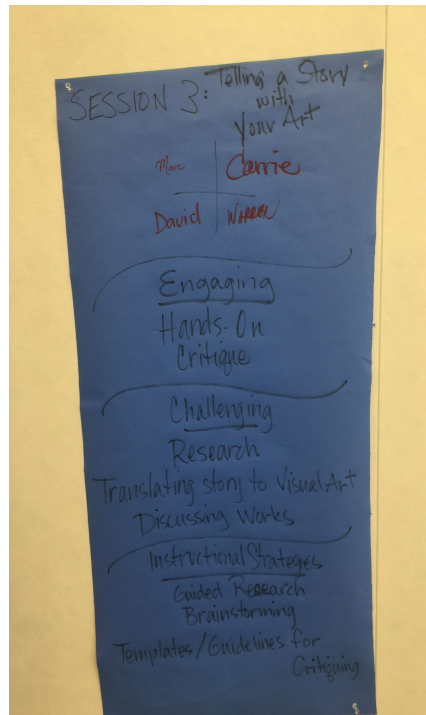 SESSION 3: Telling a Story
with
Your Art
Marc Carrie
David Warren
Engaging
Hands-On
Critique
Challenging
Research
Translating story to Visual Art
Discussing Works
Instructional Strateges
Guided Research
Brainstorming
Templates/Guidelines for
Critiquing